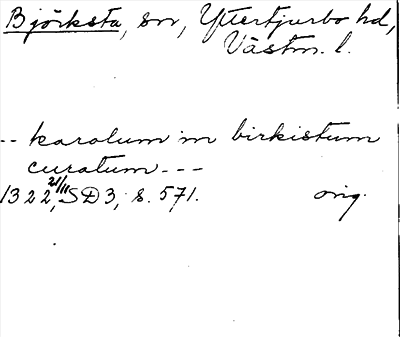 Björksta, sn, Yttertjurbo hd,
Västm. l.
-- karolum in birkistum
curatum ---
1322 21/11, SD 3, s. 571. orig.